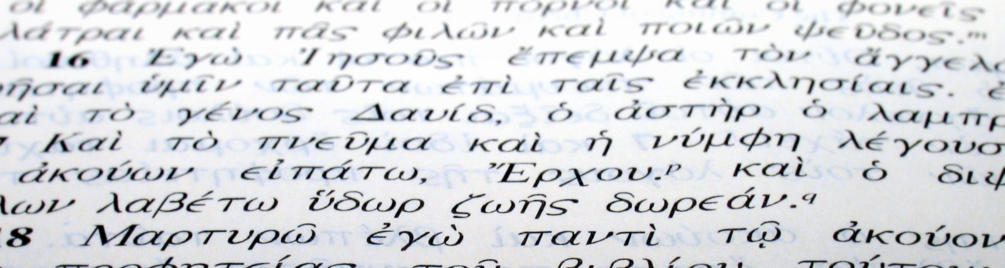 οἱ φάρμακοι καὶ οἱ πόρνοι καὶ οἱ φονεῖς
λάτραι καὶ πᾶς φιλῶν καὶ ποιῶν ψεῦδος.m
16 Ἐγὼ Ἰησοῦς ἔπεμψα τὸν ἄγγελο
ρῆσαι ὑμῖν ταῦτα ἐπὶ ταῖς ἐκκλησίαις.
αὶ τὸ γένος Δαυίδ, ὁ ἀστὴρ ὁ λαμπρ
Καὶ τὸ πνεῦμα καὶ ἡ νύμφη λέγουσ
ἀκούων εἰπάτω, Ἔρχου.p καὶ ὁ διψ
λων λαβέτω ὕδωρ ζωῆς δωρεάν.q
18 Μαρτυρῶ ἐγὼ παντὶ τῷ ἀκούον
προφητείας τοῦ βιβλίου τούτου